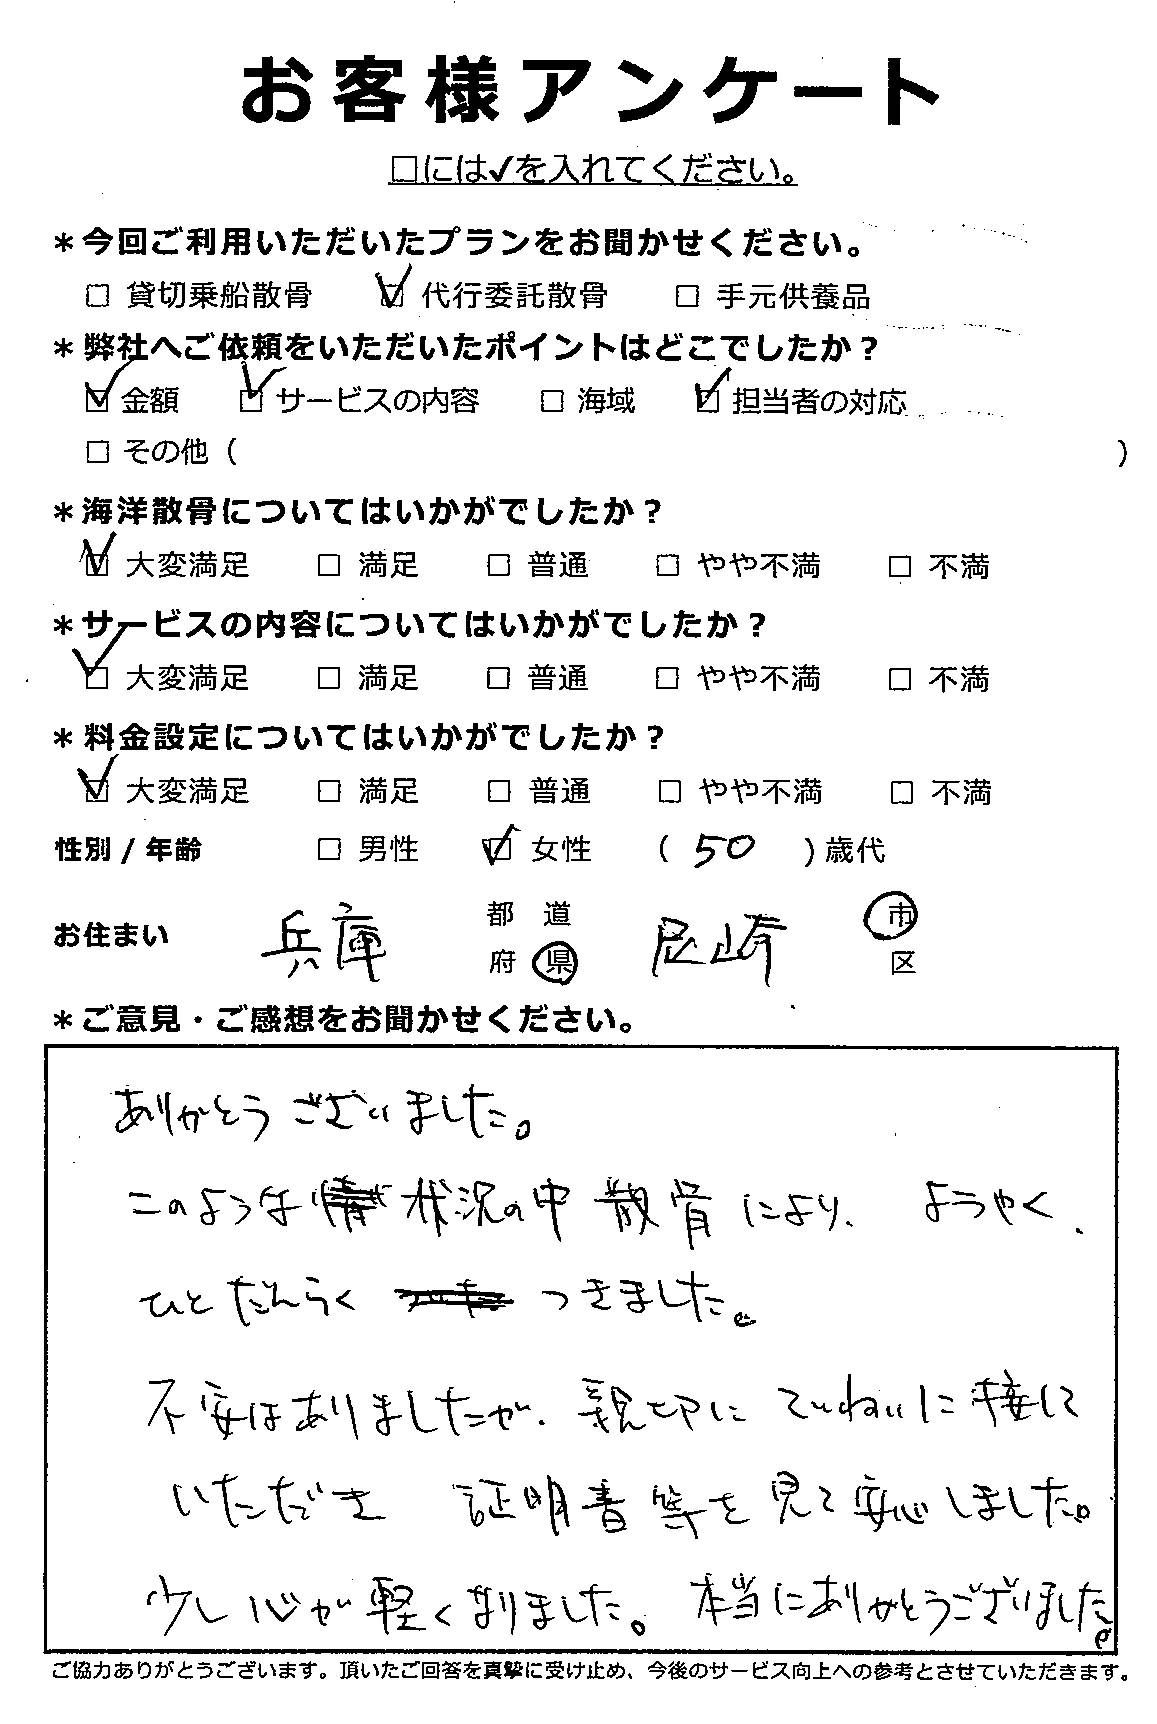 お客様アンケート
□には✓を入れてください。
＊今回ご利用いただいたプランをお聞かせください。
□ 貸切乗船散骨 ☑ 代行委託散骨 □ 手元供養品
＊弊社へご依頼をいただいたポイントはどこでしたか？
☑ 金額 ☑ サービスの内容 □ 海域 ☑ 担当者の対応
□ その他（ ）
＊海洋散骨についてはいかがでしたか？
☑ 大変満足 □ 満足 □ 普通 □ やや不満 □ 不満
＊サービスの内容についてはいかがでしたか？
☑ 大変満足 □ 満足 □ 普通 □ やや不満 □ 不満
＊料金設定についてはいかがでしたか？
☑ 大変満足 □ 満足 □ 普通 □ やや不満 □ 不満
性別 / 年齢 □ 男性 ☑ 女性 （ 50 ）歳代
お住まい 兵庫 都 道 府 県 尼崎 市 区
＊ご意見・ご感想をお聞かせください。
ありがとうございました。
このような 状況の中 散骨により、ようやく、
ひとだんらく つきました。
不安はありましたが、親切に ていねいに接して
いただき 証明書等を見て安心しました。
少し心が軽くなりました。本当にありがとうございました。
ご協力ありがとうございます。頂いたご回答を真摯に受け止め、今後のサービス向上への参考とさせていただきます。